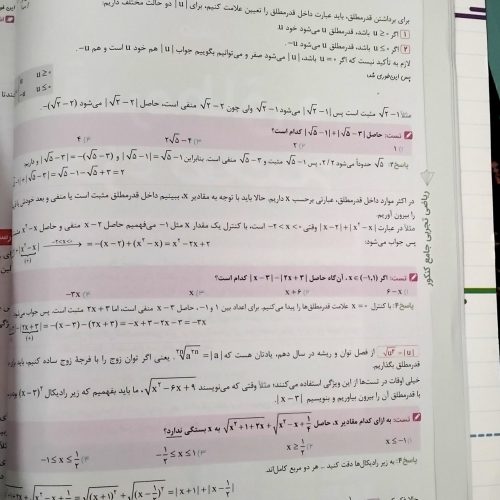 برای برداشتن قدرمطلق، باید عبارت داخل قدرمطلق را تعیین علامت کنیم، برای |u| دو حالت مختلف داریم:
۱ اگر u ≥ ۰ باشد، قدرمطلق u می‌شود خود u.
۲ اگر u ≤ ۰ باشد، قدرمطلق u می‌شود −u.
لازم به تأکید نیست که اگر u = ۰ باشد، |u| می‌شود صفر و می‌توانیم بگوییم جواب |u| هم خود u است و هم −u.
پس این‌فوری شد:
u u ≥ ۰
−u u ≤ ۰
مثلاً √۲ − ۱ مثبت است پس |√۲ − ۱| می‌شود √۲ − ۱ ولی چون √۲ − ۲ منفی است، حاصل |√۲ − ۲| می‌شود −(√۲ − ۲)
تست: حاصل |√۵ − ۱| + |√۵ − ۳| کدام است؟
۱) ۱ ۲) ۲ ۳) ۲√۵ − ۴ ۴) ۴
پاسخ ۲: √۵ حدوداً می‌شود ۲/۲، پس √۵ − ۱ مثبت و √۵ − ۳ منفی است. بنابراین |√۵ − ۱| = √۵ − ۱ و |√۵ − ۳| = −(√۵ − ۳) و داریم:
|√۵ − ۳| = √۵ − ۱ − √۵ + ۳ = ۲
در اکثر موارد داخل قدرمطلق، عبارتی برحسب x داریم. حالا باید با توجه به مقادیر x، ببینیم داخل قدرمطلق مثبت است یا منفی و بعد خودش یا
را بیرون آوریم.
مثلاً در عبارت |x − ۲| + |x² − x| وقتی −۲ < x < ۰ است، با کنترل یک مقدار x مثل −۱ می‌فهمیم حاصل x − ۲ منفی و حاصل x² − x
پس جواب می‌شود:
|x² − x| −۲<x<۰ → = −(x − ۲) + (x² − x) = x² − ۲x + ۲
(+)
تست: اگر x ∈ (−۱, ۱)، آن‌گاه حاصل |x − ۳| − |۲x + ۳| کدام است؟
۱) ۶ − x ۲) x + ۶ ۳) x ۴) −۳x
پاسخ ۴: با کنترل x = ۰ علامت قدرمطلق‌ها را پیدا می‌کنیم. برای اعداد بین ۱ و −۱، حاصل x − ۳ منفی است، اما ۲x + ۳ مثبت است. پس جواب
|۲x + ۳| = −(x − ۳) − (۲x + ۳) = −x + ۳ − ۲x − ۳ = −۳x
(+)
√u² = |u| از فصل توان و ریشه در سال دهم، یادتان هست که ²ⁿ√a²ⁿ = |a|. یعنی اگر توان زوج را با فرجهٔ زوج ساده کنیم، باید
قدرمطلق بگذاریم.
خیلی اوقات در تست‌ها از این ویژگی استفاده می‌کنند؛ مثلاً وقتی که می‌نویسند √x² − ۶x + ۹، ما باید بفهمیم که زیر رادیکال (x − ۳)²
با قدرمطلق آن را بیرون بیاوریم و بنویسیم |x − ۳|.
تست: به ازای کدام مقادیر x، حاصل √x² + ۱ + ۲x + √x² − x + ۱/۲ به x بستگی ندارد؟
۱) x ≤ −۱ ۲) x ≥ ۱/۲ ۳) −۱/۲ ≤ x ≤ ۱ ۴) −۱ ≤ x ≤ ۱/۲
پاسخ ۴: به زیر رادیکال‌ها دقت کنید - هر دو مربع کامل‌اند
= √(x + ۱)² + √(x − ۱/۲)² = |x + ۱| + |x − ۱/۲|
ریاضی تجربی جامع کنکور